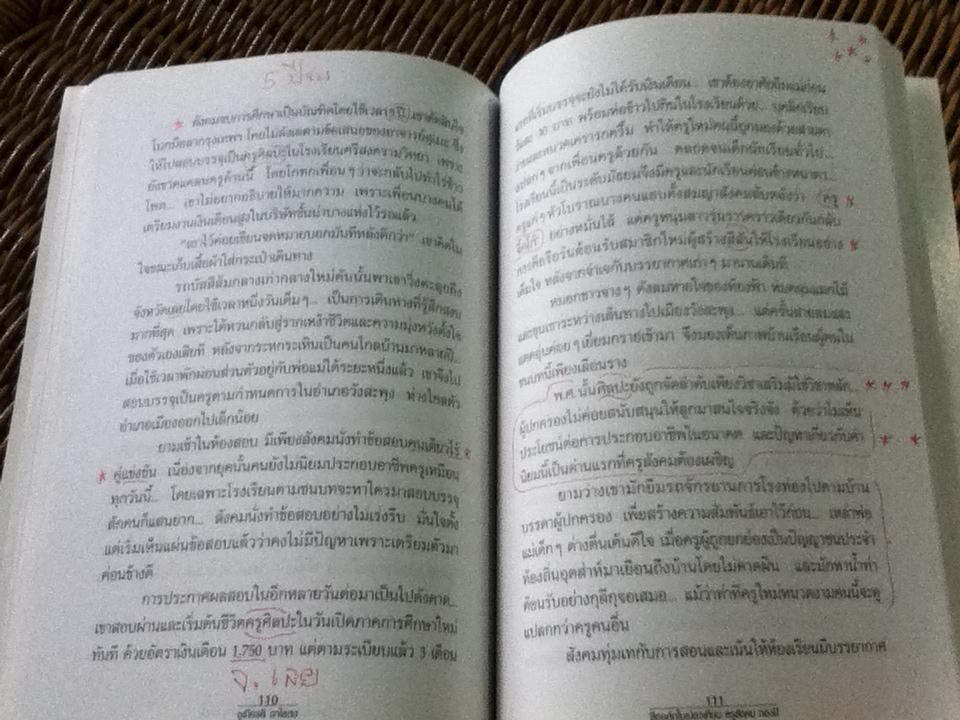 5 ปีจบ
สังคมจบการศึกษาเป็นบัณฑิตโดยใช้เวลา 5 ปี เขาตัดสินใจ
โบกมือลากรุงเทพฯ โดยไม่ลังเลตามข้อเสนอของอาจารย์ ซึ่ง
ให้ไปสอบบรรจุเป็นครูศิลปะในโรงเรียนศรีสงครามวิทยา เพราะ
ยังขาดแคลนครูด้านนี้ โดยโกหกเพื่อนๆ ว่าจะกลับไปทำไร่ข้าว
โพด... เขาไม่อยากอธิบายให้มากความ เพราะเพื่อนบางคนได้
เตรียมงานเงินเดือนสูงในบริษัทชั้นนำบางแห่งไว้รอแล้ว
"เอาไว้ค่อยเขียนจดหมายบอกมันทีหลังดีกว่า" เขาคิดใน
ใจขณะเก็บเสื้อผ้าใส่กระเป๋าเดินทาง
รถบัสสีส้มกลางเก่ากลางใหม่คันนั้นพาเขาวิ่งตะลุยถึง
จังหวัดเลยโดยใช้เวลาหนึ่งวันเต็มๆ... เป็นการเดินทางที่รู้สึกสงบ
มากที่สุด เพราะได้หวนกลับสู่รากเหง้าชีวิตและความมุ่งหวังตั้งใจ
ของตัวเองเสียที หลังจากระหกระเหินเป็นคนไกลบ้านมาหลายปี...
เมื่อใช้เวลาพักผ่อนส่วนตัวอยู่กับพ่อแม่ได้ระยะหนึ่งแล้ว เขาจึงไป
สอบบรรจุเป็นครูตามกำหนดการในอำเภอวังสะพุง ห่างไกลตัว
อำเภอเมืองออกไปเล็กน้อย
ยามเช้าในห้องสอบ มีเพียงสังคมนั่งทำข้อสอบคนเดียวไร้
คู่แข่งขัน เนื่องจากยุคนั้นคนยังไม่นิยมประกอบอาชีพครูเหมือน
ทุกวันนี้... โดยเฉพาะโรงเรียนตามชนบทจะหาใครมาสอบบรรจุ
สักคนก็แสนยาก... สังคมนั่งทำข้อสอบอย่างไม่เร่งรีบ มั่นใจตั้ง
แต่เริ่มเห็นแผ่นข้อสอบแล้วว่าคงไม่มีปัญหาเพราะเตรียมตัวมา
ค่อนข้างดี
การประกาศผลสอบในอีกหลายวันต่อมาเป็นไปดังคาด...
เขาสอบผ่านและเริ่มต้นชีวิตครูศิลปะในวันเปิดภาคการศึกษาใหม่
ทันที ด้วยอัตราเงินเดือน 1,750 บาท แต่ตามระเบียบแล้ว 3 เดือน
จ. เลย
110
แรกที่เริ่มบรรจุจะยังไม่ได้รับเงินเดือน... เขาต้องอาศัยยืมแม่ก่อน
วันละ 30 บาท พร้อมห่อข้าวไปกินในโรงเรียนด้วย...
แปลกๆ จากเพื่อนครูด้วยกัน ตลอดจนเด็กนักเรียนทั่วไป...
อย่างหมั่นไส้ แต่ครูหนุ่มสาวรุ่นราวคราวเดียวกันกลับ
ต้อนรับสมาชิกใหม่ผู้สร้างสีสันให้โรงเรียนอย่าง
เต็มใจ หลังจากจำเจกับบรรยากาศเก่าๆ มานานเต็มที
หมอกขาวจางๆ ดังลมหายใจของท้องฟ้า ห่มคลุมแมกไม้
และขุนเขาระหว่างเดินทางไปเมืองวังสะพุง... แต่ครั้นสายลมและ
แดดอุ่นค่อยๆ เยี่ยมกรายเข้ามา จึงมองเห็นภาพบ้านเรือนผู้คนใน
ชนบทนี้เพียงเลือนราง
พ.ศ.นั้นศิลปะยังถูกจัดลำดับเพียงวิชาเสริมมิใช่วิชาหลัก...
ผู้ปกครองไม่ค่อยสนับสนุนให้ลูกมาสนใจจริงจัง ด้วยว่าไม่เห็น
ประโยชน์ต่อการประกอบอาชีพในอนาคต และปัญหาเกี่ยวกับค่า
นิยมนี้เป็นด่านแรกที่ครูสังคมต้องเผชิญ
ยามว่างเขามักยืมรถจักรยานภารโรงท่องไปตามบ้าน
บรรดาผู้ปกครอง เพื่อสร้างความสัมพันธ์เอาไว้ก่อน... เหล่าพ่อ
แม่เด็กๆ ต่างตื่นเต้นดีใจ เมื่อครูผู้ถูกยกย่องเป็นปัญญาชนประจำ
ท้องถิ่นอุตส่าห์มาเยือนถึงบ้านโดยไม่คาดฝัน และมักหาน้ำท่า
ต้อนรับอย่างกุลีกุจอเสมอ... แม้ว่าท่าทีครูใหม่หนวดงามคนนี้จะดู
แปลกกว่าครูคนอื่น
สังคมทุ่มเทกับการสอนและเน้นให้ห้องเรียนมีบรรยากาศ
111